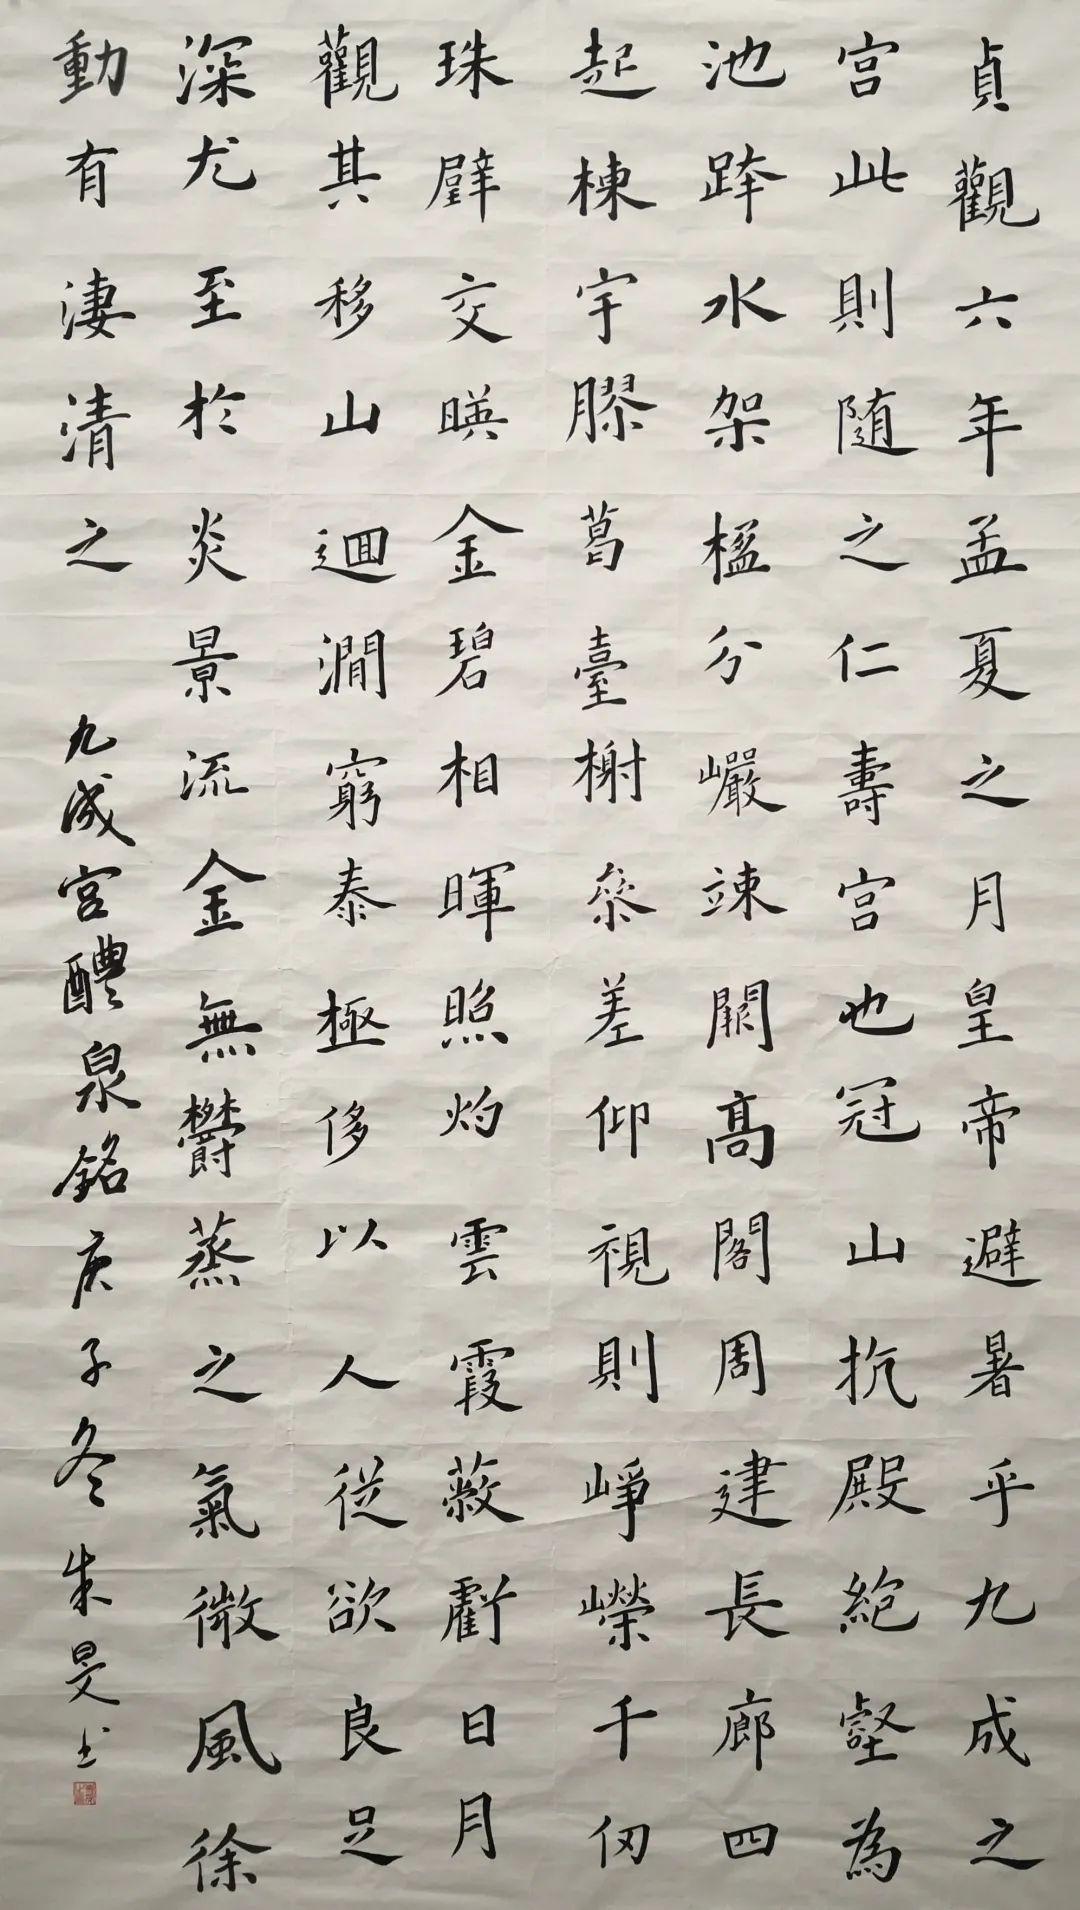 貞觀六年孟夏之月皇帝避暑乎九成之
宮此則随之仁壽宮也冠山抗殿絶壑為
池跨水架楹分巖竦闕高閣周建長廊四
起棟宇膠葛臺榭叅差仰視則崢嶸千仞
珠壁交暎金碧相暉照灼雲霞蔽虧日月
觀其移山迴澗窮泰極侈以人從欲良足
深尤至於炎景流金無鬱蒸之氣微風徐
動有淒清之
九成宮醴泉銘庚子冬朱旻书